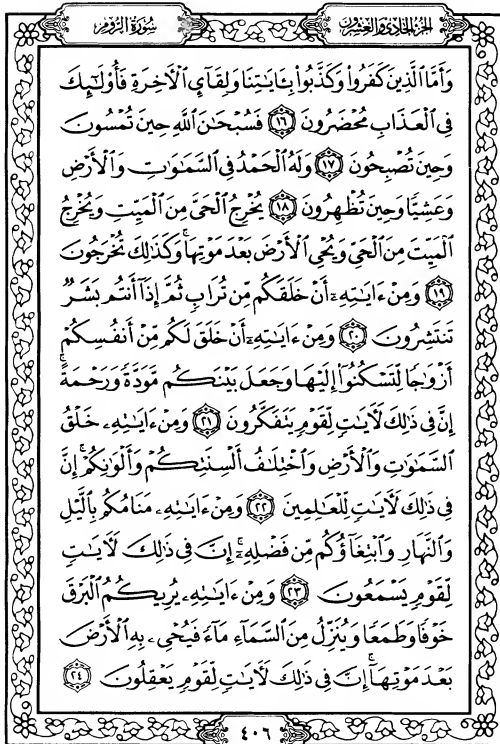 الجزء الحادي والعشرون
سورة الروم
وَأَمَّا ٱلَّذِينَ كَفَرُواْ وَكَذَّبُواْ بِـَٔايَٰتِنَا وَلِقَآيِٕ ٱلْأٓخِرَةِ فَأُوْلَٰٓئِكَ
فِى ٱلْعَذَابِ مُحْضَرُونَ ١٦ فَسُبْحَٰنَ ٱللَّهِ حِينَ تُمْسُونَ
وَحِينَ تُصْبِحُونَ ١٧ وَلَهُ ٱلْحَمْدُ فِى ٱلسَّمَٰوَٰتِ وَٱلْأَرْضِ
وَعَشِيًّا وَحِينَ تُظْهِرُونَ ١٨ يُخْرِجُ ٱلْحَىَّ مِنَ ٱلْمَيِّتِ وَيُخْرِجُ
ٱلْمَيِّتَ مِنَ ٱلْحَىِّ وَيُحْىِ ٱلْأَرْضَ بَعْدَ مَوْتِهَا ۚ وَكَذَٰلِكَ تُخْرَجُونَ
١٩ وَمِنْ ءَايَٰتِهِۦٓ أَنْ خَلَقَكُم مِّن تُرَابٍ ثُمَّ إِذَآ أَنتُم بَشَرٌ
تَنتَشِرُونَ ٢٠ وَمِنْ ءَايَٰتِهِۦٓ أَنْ خَلَقَ لَكُم مِّنْ أَنفُسِكُمْ
أَزْوَٰجًا لِّتَسْكُنُوٓاْ إِلَيْهَا وَجَعَلَ بَيْنَكُم مَّوَدَّةً وَرَحْمَةً ۚ
إِنَّ فِى ذَٰلِكَ لَأٓيَٰتٍ لِّقَوْمٍ يَتَفَكَّرُونَ ٢١ وَمِنْ ءَايَٰتِهِۦ خَلْقُ
ٱلسَّمَٰوَٰتِ وَٱلْأَرْضِ وَٱخْتِلَٰفُ أَلْسِنَتِكُمْ وَأَلْوَٰنِكُمْ ۚ إِنَّ
فِى ذَٰلِكَ لَأٓيَٰتٍ لِّلْعَٰلِمِينَ ٢٢ وَمِنْ ءَايَٰتِهِۦ مَنَامُكُم بِٱلَّيْلِ
وَٱلنَّهَارِ وَٱبْتِغَآؤُكُم مِّن فَضْلِهِۦٓ ۚ إِنَّ فِى ذَٰلِكَ لَأٓيَٰتٍ
لِّقَوْمٍ يَسْمَعُونَ ٢٣ وَمِنْ ءَايَٰتِهِۦ يُرِيكُمُ ٱلْبَرْقَ
خَوْفًا وَطَمَعًا وَيُنَزِّلُ مِنَ ٱلسَّمَآءِ مَآءً فَيُحْىِۦ بِهِ ٱلْأَرْضَ
بَعْدَ مَوْتِهَآ ۚ إِنَّ فِى ذَٰلِكَ لَأٓيَٰتٍ لِّقَوْمٍ يَعْقِلُونَ ٢٤
٤٠٦